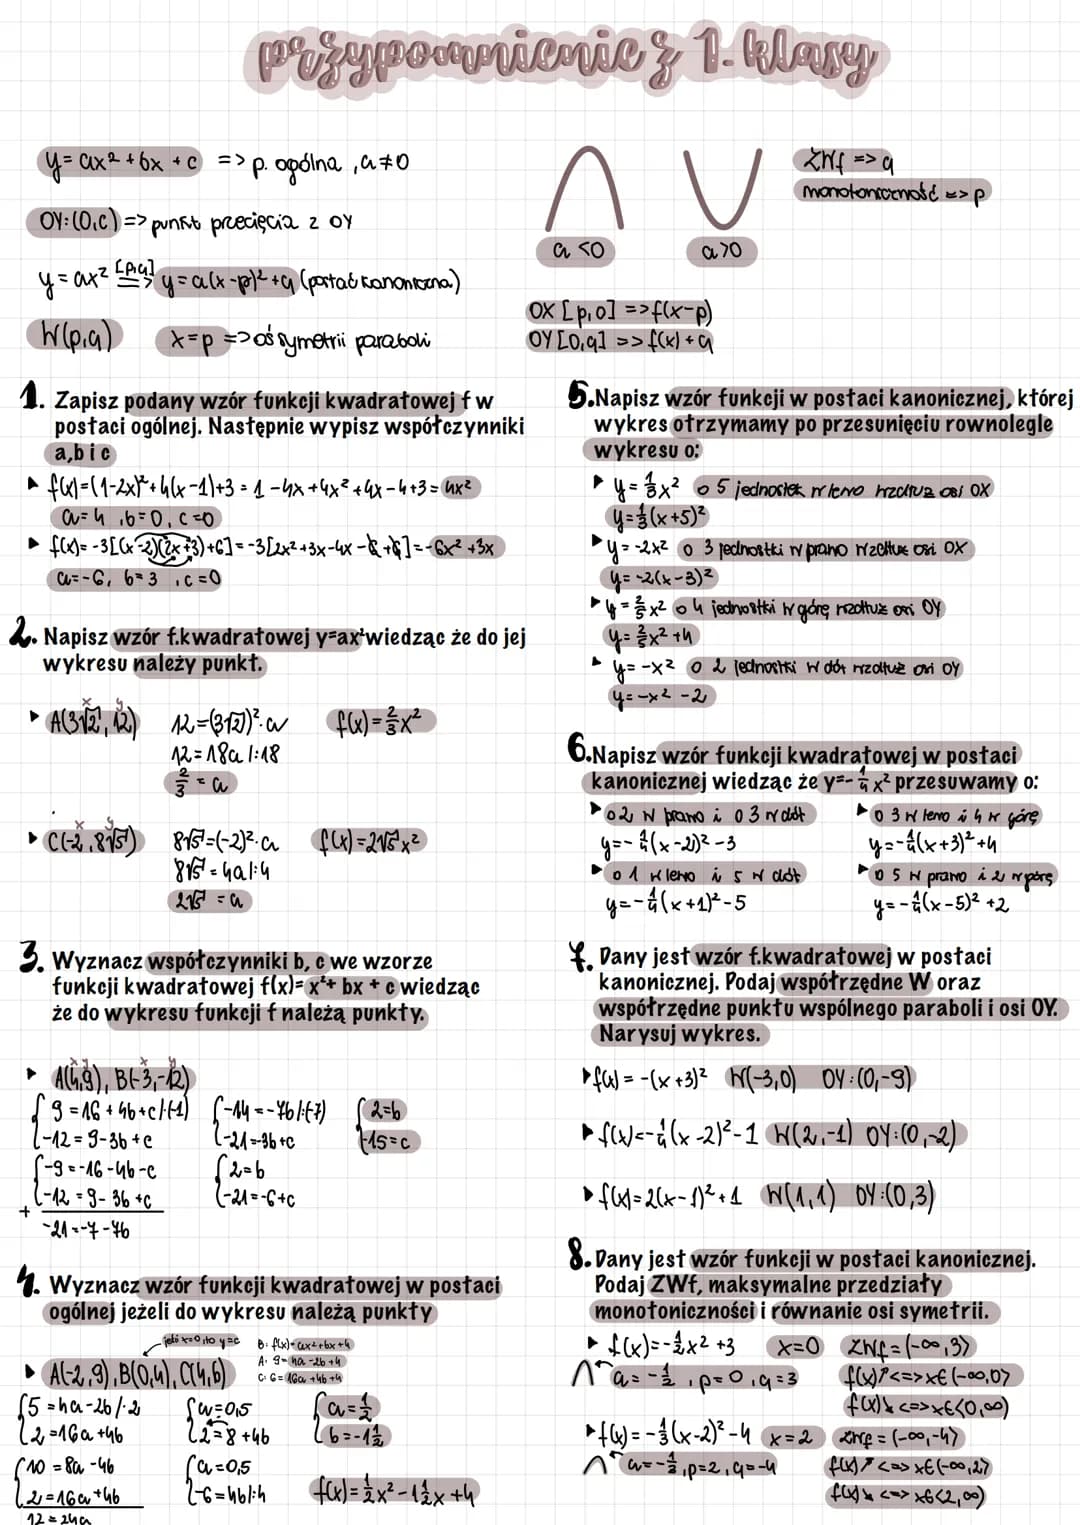 przypomnienie z 1. klasy
y = ax² + bx + c => p. ogólna, a≠0
OY: (0,c) => punkt przecięcia z OY
y = ax² [p,q] => y = a(x-p)² + q (postać kanoniczna)
W(p,q) x=p => oś symetrii paraboli
a<0 a>0
ZWf => q
monotoniczność => p
OX [p,0] => f(x-p)
OY [0,q] => f(x)+q
1. Zapisz podany wzór funkcji kwadratowej f w
postaci ogólnej. Następnie wypisz współczynniki
a,b i c
f(x)=(1-2x)²+4(x-1)+3 = 1-4x+4x²+4x-4+3 = 4x²
a=4, b=0, c=0
f(x)= -3[(x-2)(2x+3)+6] = -3[2x²+3x-4x-6+6] = -6x²+3x
a=-6, b=3, c=0
2. Napisz wzór f.kwadratowej y=ax² wiedząc że do jej
wykresu należy punkt.
x y
A(3√2, 12) 12=(3√2)²·a f(x)=2/3x²
12=18a /:18
2/3 = a
x y
C(-2, 8√5) 8√5=(-2)²·a f(x)=2√5x²
8√5=4a/:4
2√5 = a
3. Wyznacz współczynniki b, c we wzorze
funkcji kwadratowej f(x)= x²+ bx + c wiedząc
że do wykresu funkcji f należą punkty.
x y x y
A(4,9), B(-3,-12)
9=16+4b+c/·(-1) -14=-7b/:(-7) 2=b
-12=9-3b+c -21=-3b+c -15=c
-9=-16-4b-c 2=b
-12=9-3b+c -21=-6+c
+
-21=-7-7b
4. Wyznacz wzór funkcji kwadratowej w postaci
ogólnej jeżeli do wykresu należą punkty
jeśli x=0, to y=c
B: f(x)=ax²+bx+4
A: 9=4a-2b+4
C: 6=16a+4b+4
A(-2,9), B(0,4), C(4,6)
5=4a-2b/·2 a=0,5 a=1/2
2=16a+4b 2=8+4b b=-1 1/2
10=8a-4b a=0,5
2=16a+4b -6=4b/:4 f(x)=1/2x²-1 1/2x+4
12=24a
5.Napisz wzór funkcji w postaci kanonicznej, której
wykres otrzymamy po przesunięciu rownolegle
wykresu o:
y=1/3x² o 5 jednostek w lewo wzdłuż osi OX
y=1/3(x+5)²
y=-2x² o 3 jednostki w prawo wzdłuż osi OX
y=-2(x-3)²
y=2/5x² o 4 jednostki w górę wzdłuż osi OY
y=2/5x²+4
y=-x² o 2 jednostki w dół wzdłuż osi OY
y=-x²-2
6.Napisz wzór funkcji kwadratowej w postaci
kanonicznej wiedząc że y=-1/4x² przesuwamy o:
o 2 w prawo i o 3 w dół o 3 w lewo i 4 w górę
y=-1/4(x-2)²-3 y=-1/4(x+3)²+4
o 1 w lewo i 5 w dół o 5 w prawo i 2 w górę
y=-1/4(x+1)²-5 y=-1/4(x-5)²+2
7. Dany jest wzór f.kwadratowej w postaci
kanonicznej. Podaj współrzędne W oraz
współrzędne punktu wspólnego paraboli i osi OY.
Narysuj wykres.
f(x)=-(x+3)² W(-3,0) OY:(0,-9)
f(x)=-1/4(x-2)²-1 W(2,-1) OY:(0,-2)
f(x)=2(x-1)²+1 W(1,1) OY:(0,3)
8. Dany jest wzór funkcji w postaci kanonicznej.
Podaj ZWf, maksymalne przedziały
monotoniczności i równanie osi symetrii.
f(x)=-1/2x²+3 x=0 ZWf=(-∞,3>
a=-1/2, p=0, q=3 f(x)↗<=>x∈(-∞,0>
f(x)↘<=>x∈<0,∞)
f(x)=-1/3(x-2)²-4 x=2 ZWf=(-∞,-4>
a=-1/3, p=2, q=-4 f(x)↗<=>x∈(-∞,2>
f(x)↘<=>x∈<2,∞)